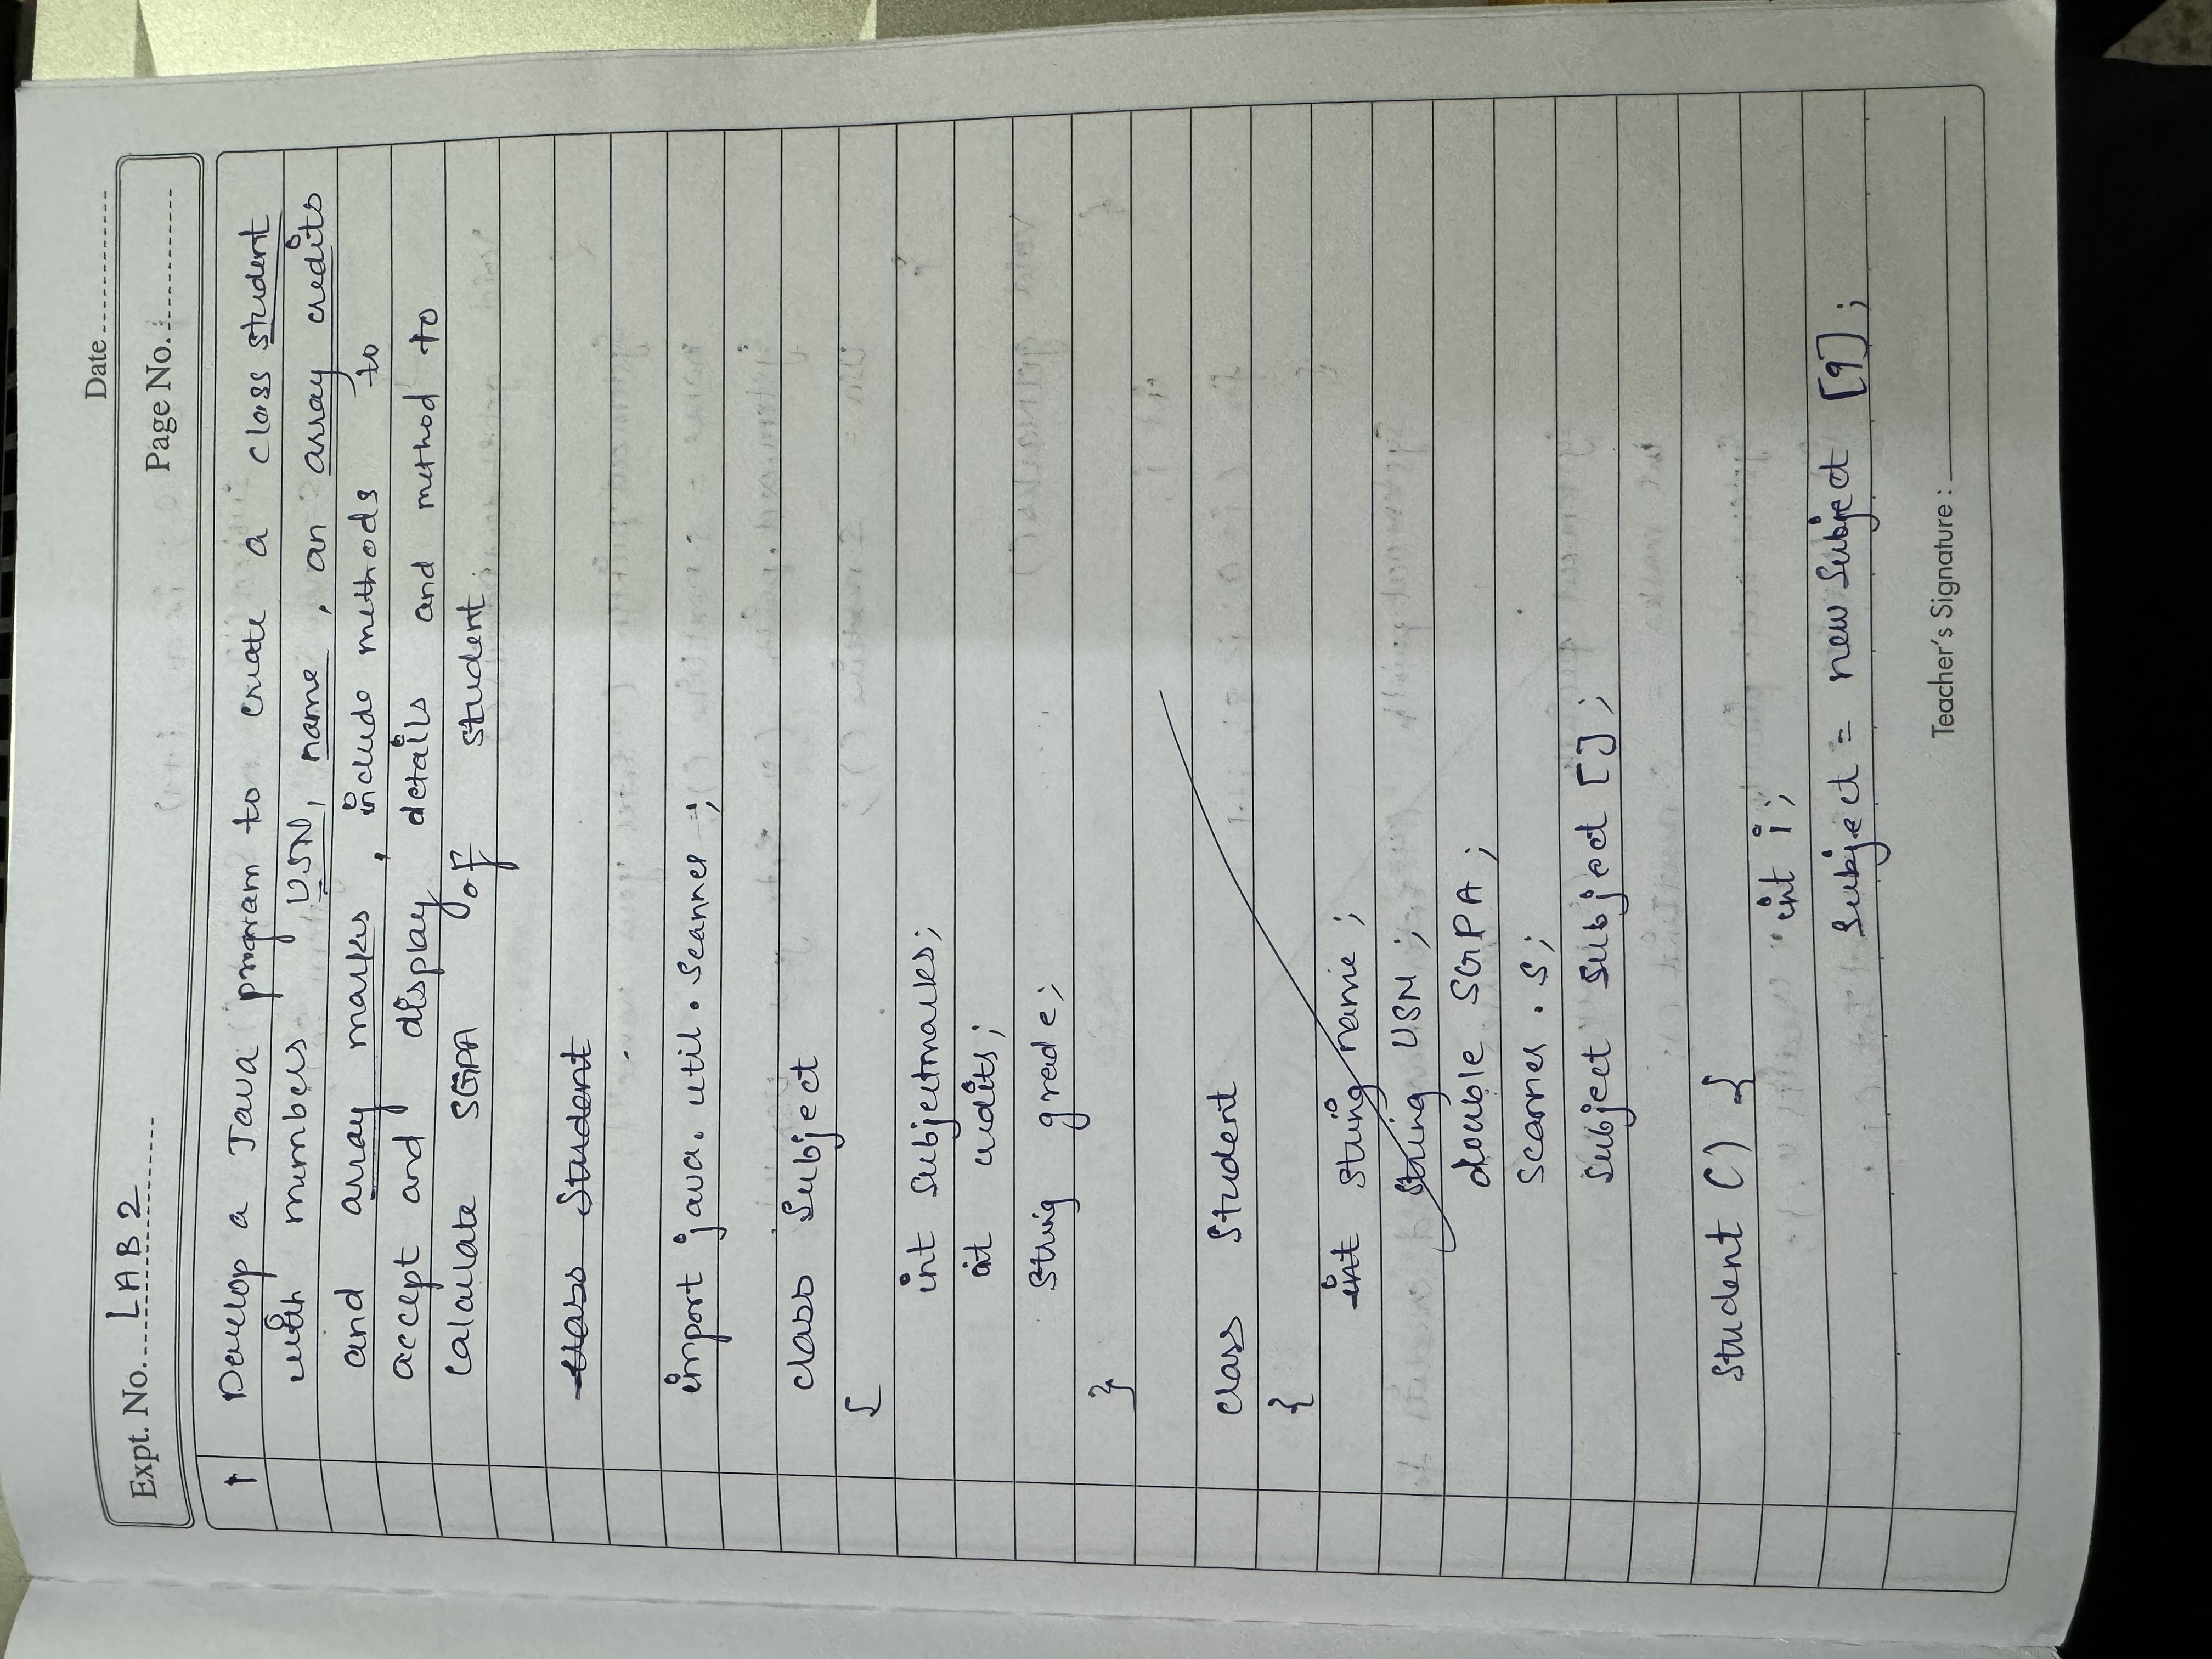 Date
Expt. No. LAB 2
Page No.
1 Develop a Java program to create a class student
with members USN, name, an array credits
and array marks, include methods to
accept and display details and method to
calculate SGPA of student.
class Student
import java.util.Scanner;
class Subject
{
int Subjectmarks;
int credits;
String grade;
}
class Student
{
int String name;
String USN;
double SGPA;
Scanner . s;
Subject Subject [];
Student () {
int i;
Subject = new Subject [9];
Teacher's Signature :